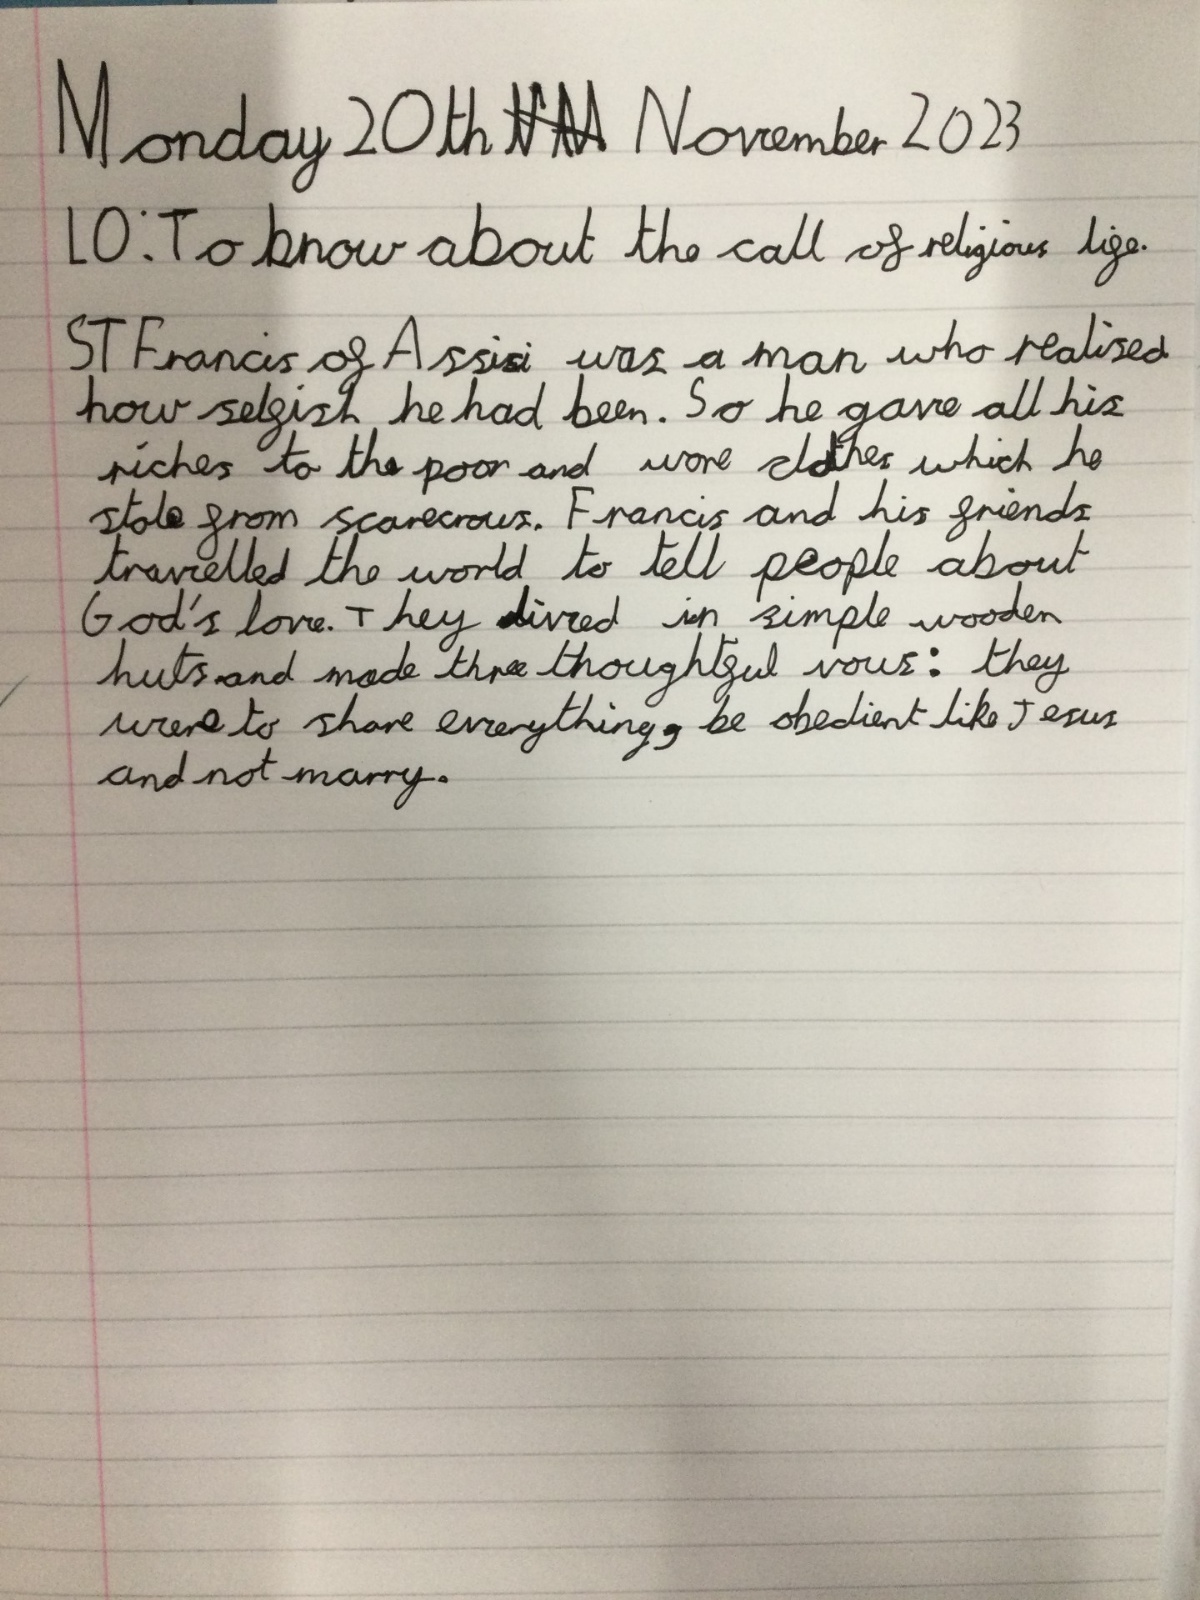 Monday 20th November 2023
LO: To know about the call of religious life.
ST Francis of Assisi was a man who realised
how selfish he had been. So he gave all his
riches to the poor and wore clothes which he
stole from scarecrows. Francis and his friends
travelled the world to tell people about
God's love. They lived in simple wooden
huts and made three thoughtful vows: they
were to share everything, be obedient like Jesus
and not marry.